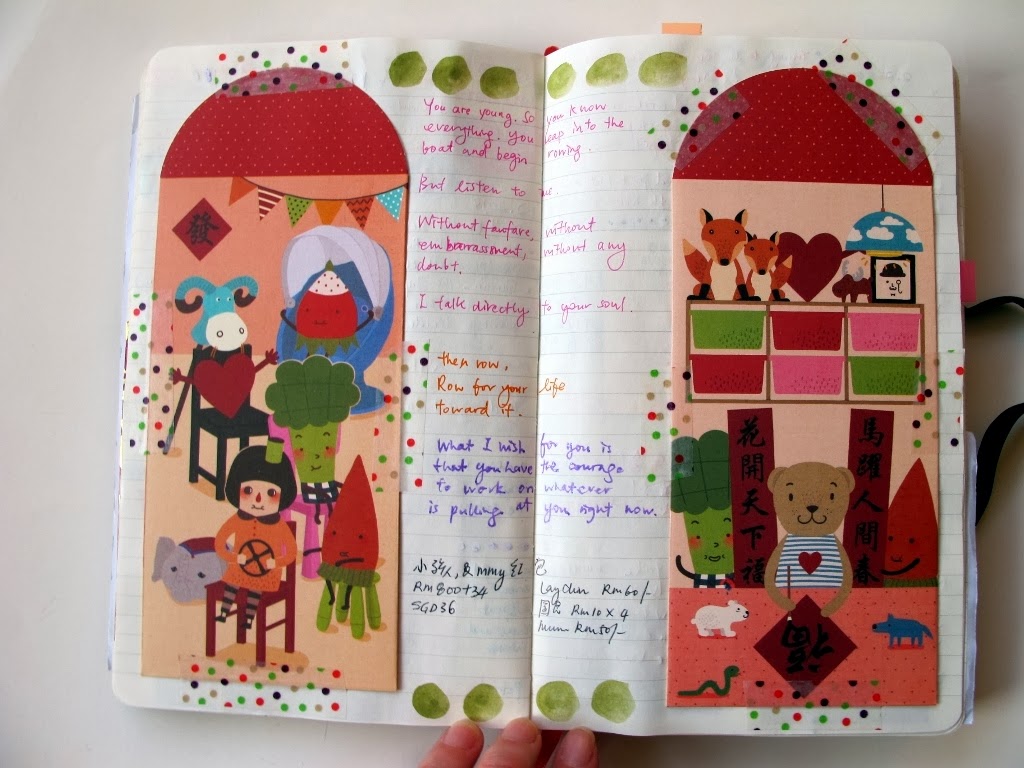 發
You are young. So you know
everything. You leap into the
boat and begin rowing.
But listen to me.
Without fanfare, without
embarrassment, without any
doubt.
I talk directly to your soul.
then row,
Row for your life
toward it.
What I wish for you is
that you have the courage
to work on whatever
is pulling at you right now.
小孩, & mmy 红
RM800+34
SGD36
RM60/-
RM10 x 4
mum RM50/-
馬躍人間春
花開天下福